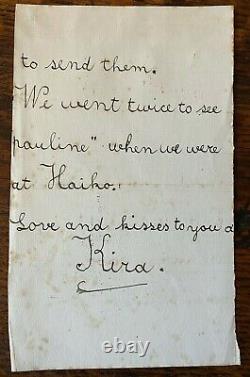 to send them.
"We went twice to see
pauline" when we were
at Haiko.
Love and kisses to you a
Kira.